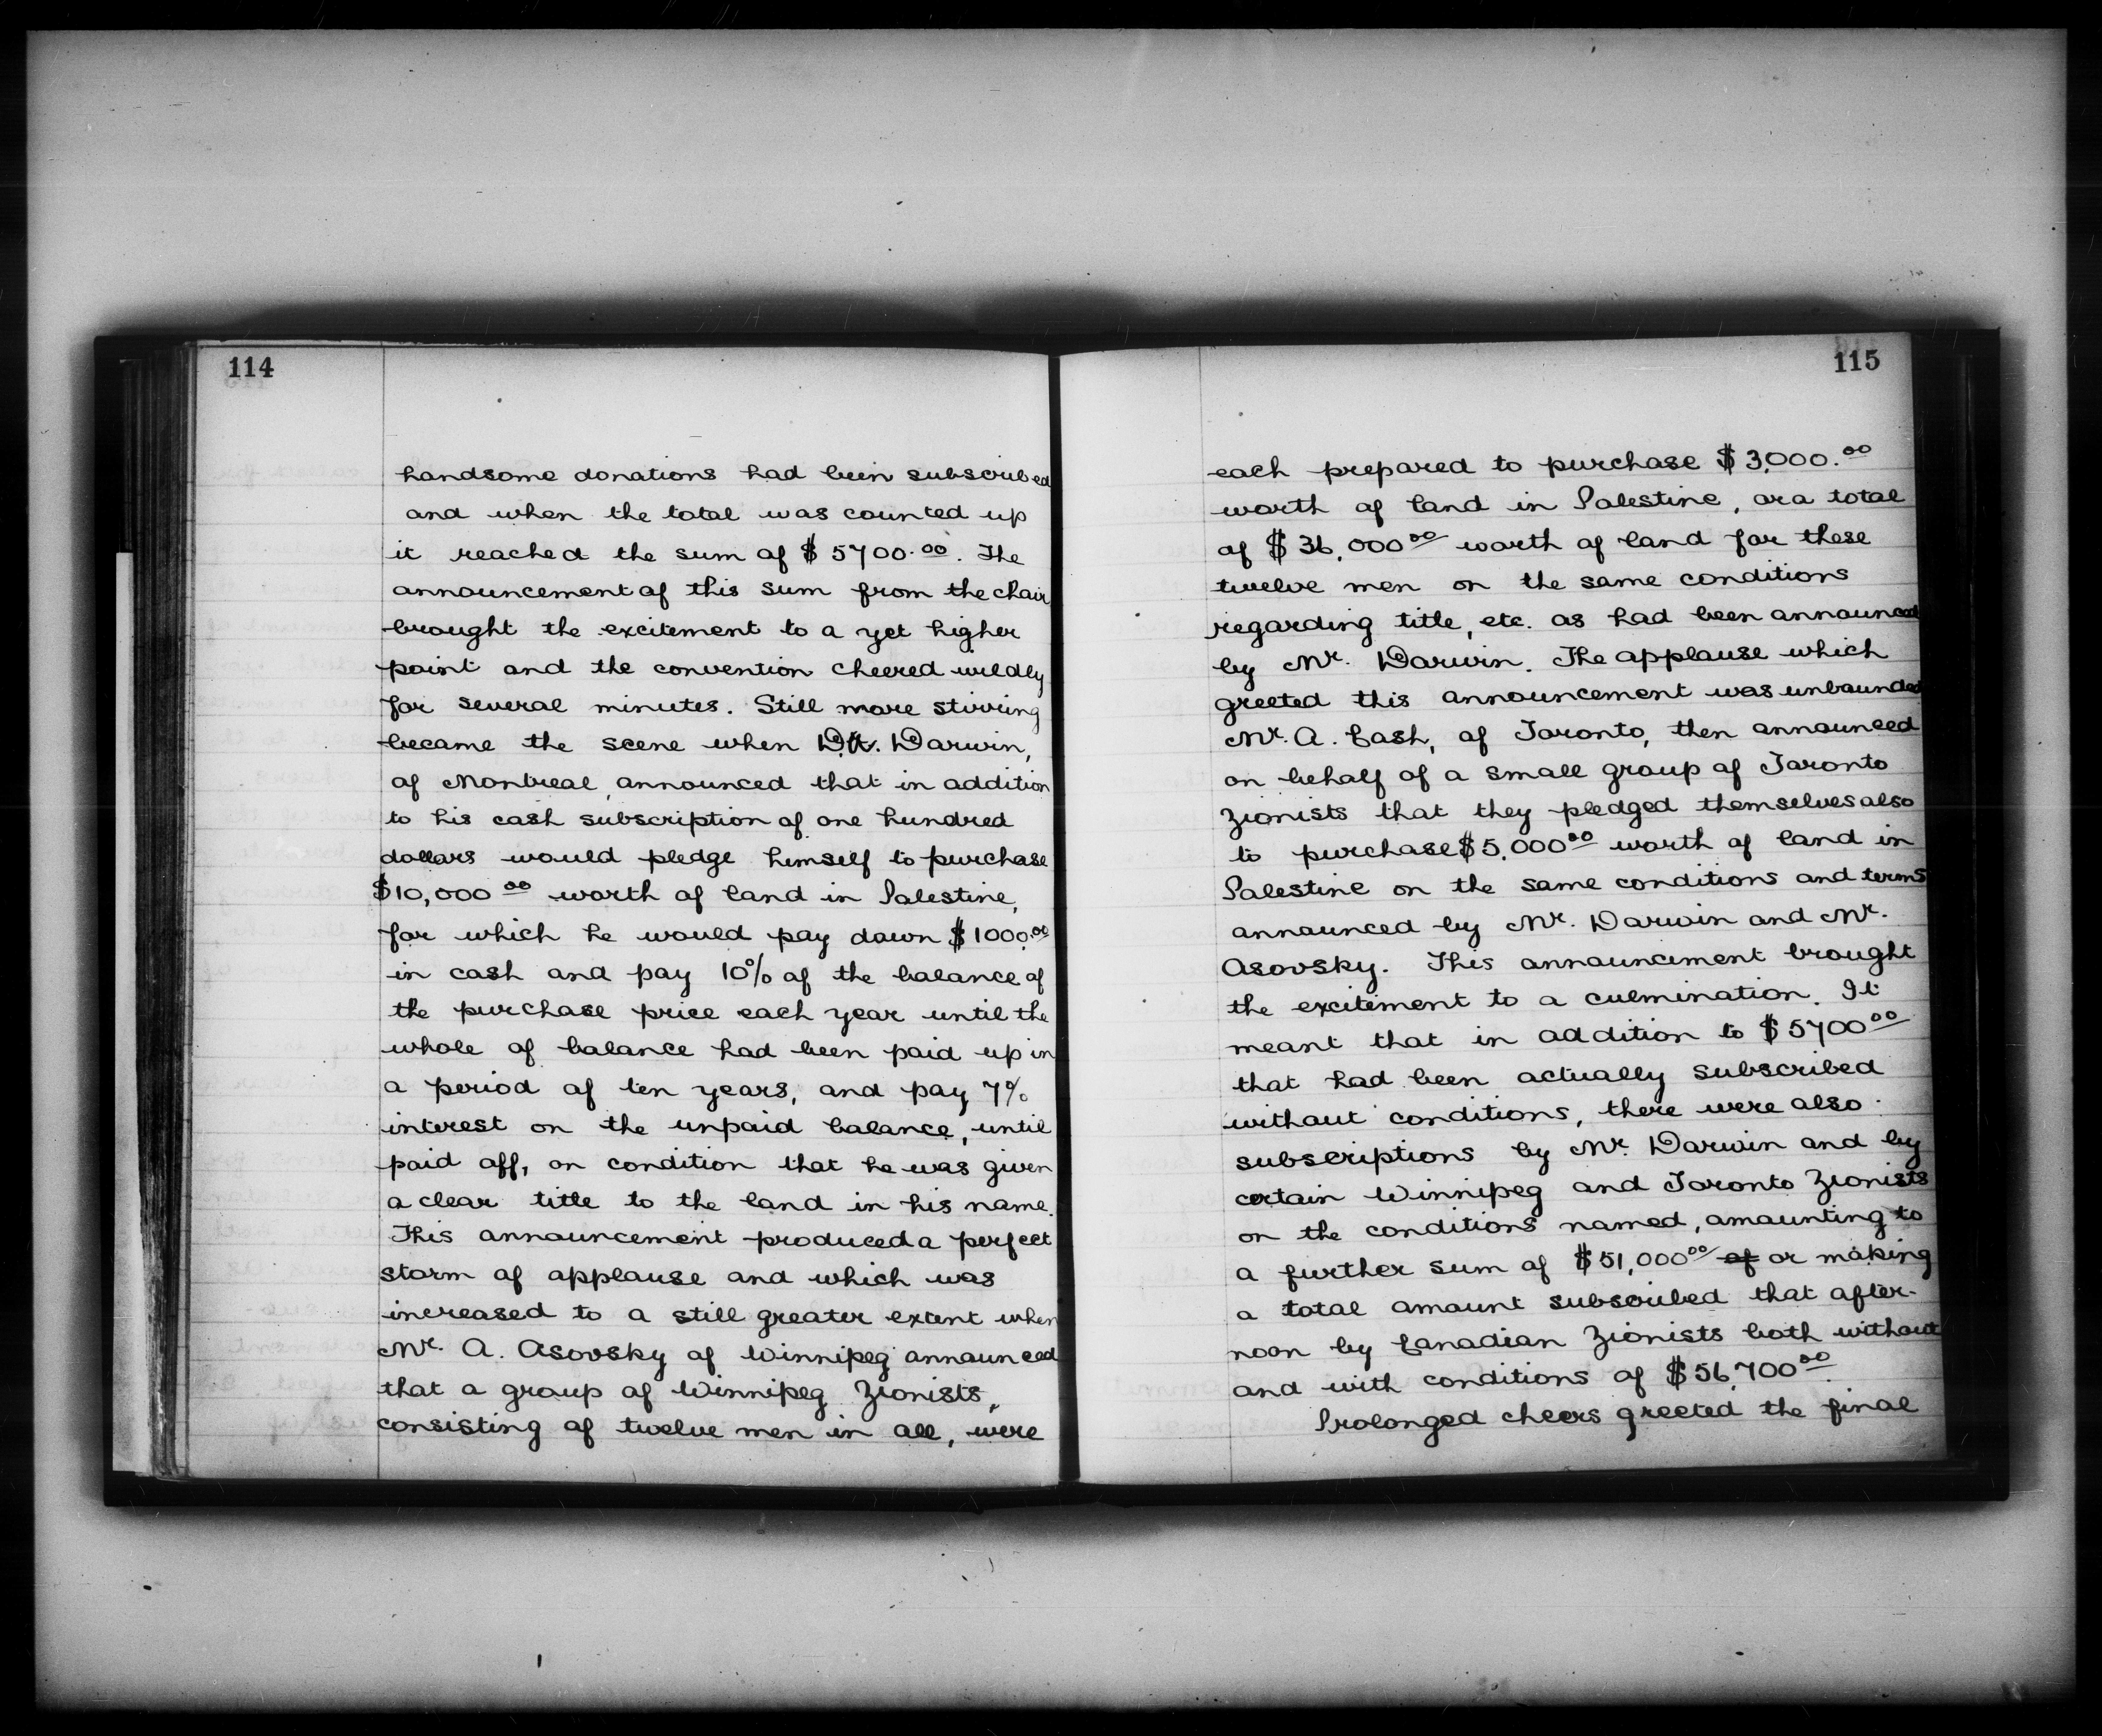 114
handsome donations had been subscribed
and when the total was counted up
it reached the sum of $5700.00. The
announcement of this sum from the chair
brought the excitement to a yet higher
point and the convention cheered wildly
for several minutes. Still more stirring
became the scene when Darwin,
of Montreal, announced that in addition
to his cash subscription of one hundred
dollars would pledge himself to purchase
$10,000 00 worth of land in Palestine,
for which he would pay down $1000.00
in cash and pay 10% of the balance of
the purchase price each year until the
whole of balance had been paid up in
a period of ten years, and pay 7%
interest on the unpaid balance, until
paid off, on condition that he was given
a clear title to the land in his name.
This announcement produced a perfect
storm of applause and which was
increased to a still greater extent when
Mr. A. Asovsky of Winnipeg announced
that a group of Winnipeg Zionists,
consisting of twelve men in all, were
115
each prepared to purchase $3,000.00
worth of land in Palestine, or a total
of $36,000 00 worth of land for these
twelve men on the same conditions
regarding title, etc. as had been announced
by Mr. Darwin. The applause which
greeted this announcement was unbounded
Mr. A. Cash, of Toronto, then announced
on behalf of a small group of Toronto
Zionists that they pledged themselves also
to purchase $5,000 00 worth of land in
Palestine on the same conditions and terms
announced by Mr. Darwin and Mr.
Asovsky. This announcement brought
the excitement to a culmination. It
meant that in addition to $5700 00
that had been actually subscribed
without conditions, there were also
subscriptions by Mr. Darwin and by
certain Winnipeg and Toronto Zionists
on the conditions named, amounting to
a further sum of $51,000 00 of or making
a total amount subscribed that after-
noon by Canadian Zionists both without
and with conditions of $56,700 00.
Prolonged cheers greeted the final